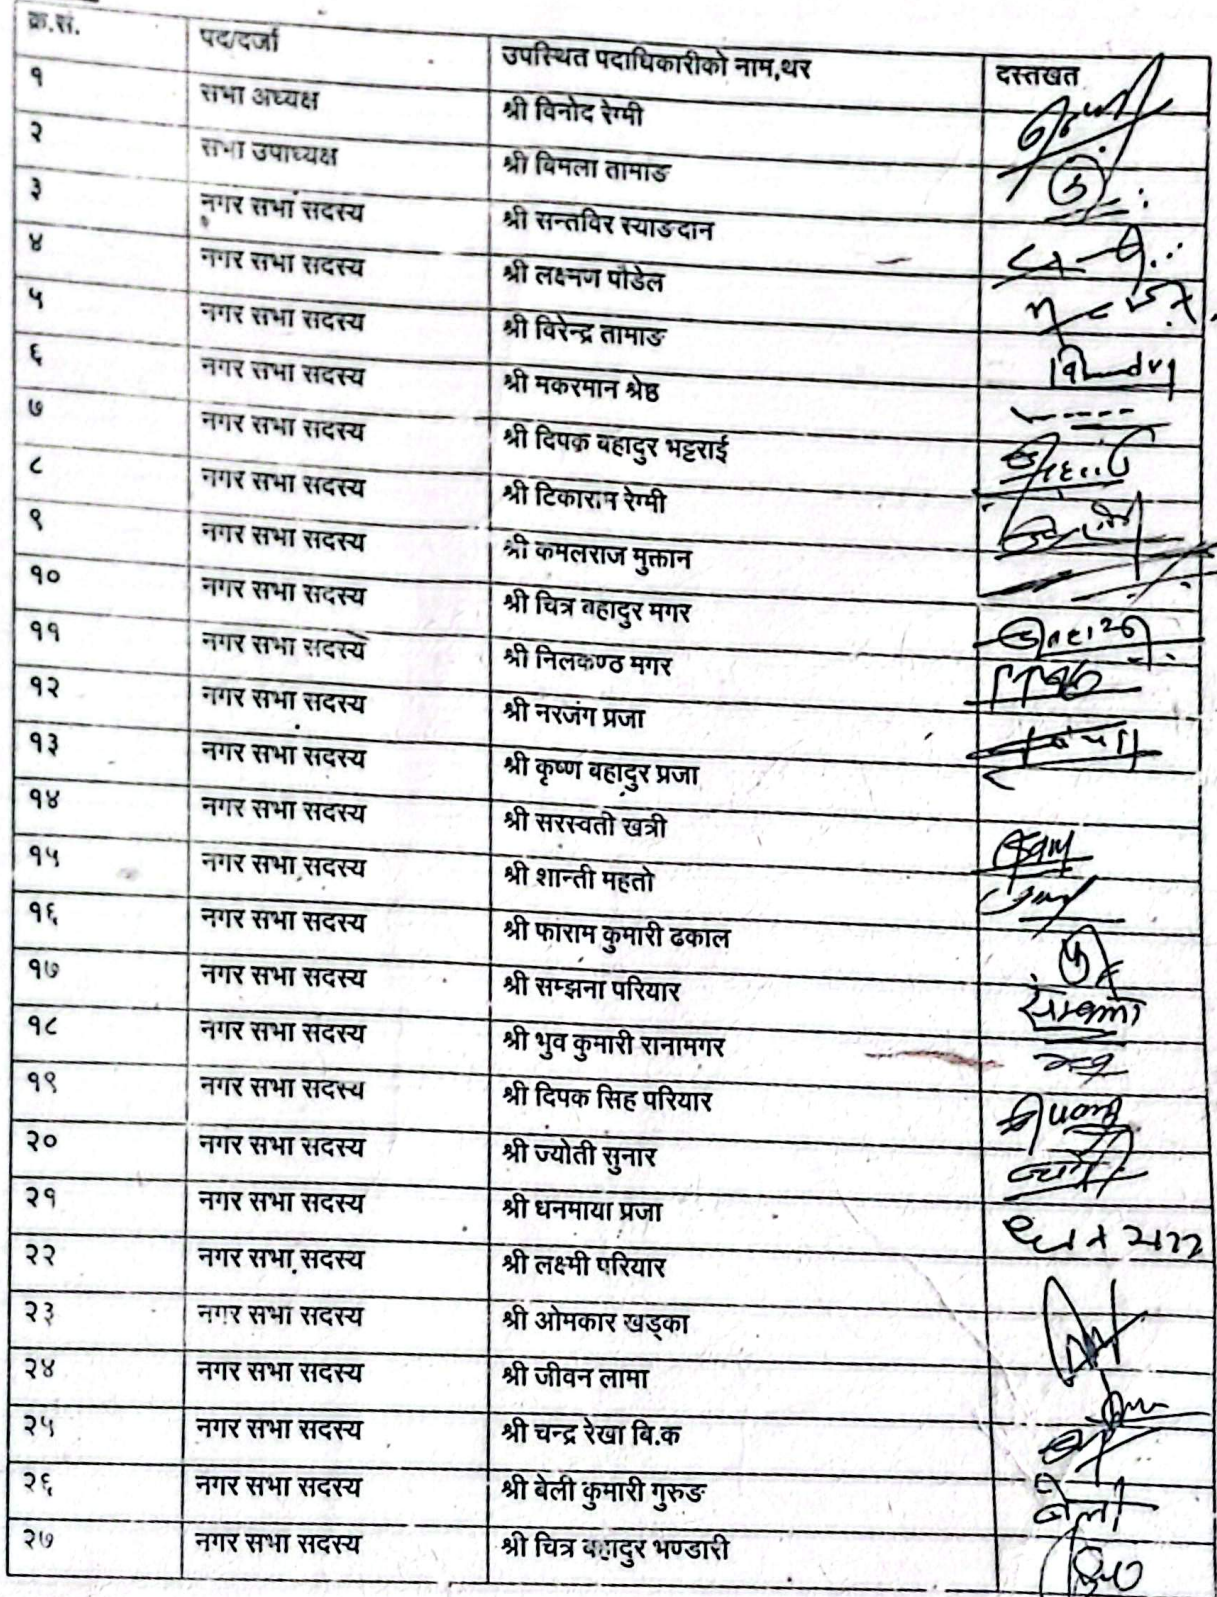 क्र.सं. पद/दर्जा उपस्थित पदाधिकारीको नाम,थर दस्तखत
१ सभा अध्यक्ष श्री विनोद रेग्मी
२ सभा उपाध्यक्ष श्री विमला तामाङ
३ नगर सभा सदस्य श्री सन्तविर स्याङदान
४ नगर सभा सदस्य श्री लक्ष्मण पौडेल
५ नगर सभा सदस्य श्री विरेन्द्र तामाङ
६ नगर सभा सदस्य श्री मकरमान श्रेष्ठ
७ नगर सभा सदस्य श्री दिपक बहादुर भट्टराई
८ नगर सभा सदस्य श्री टिकाराम रेग्मी
९ नगर सभा सदस्य श्री कमलराज मुक्तान
१० नगर सभा सदस्य श्री चित्र बहादुर मगर
११ नगर सभा सदस्य श्री निलकण्ठ मगर
१२ नगर सभा सदस्य श्री नरजंग प्रजा
१३ नगर सभा सदस्य श्री कृष्ण बहादुर प्रजा
१४ नगर सभा सदस्य श्री सरस्वती खत्री
१५ नगर सभा सदस्य श्री शान्ती महतो
१६ नगर सभा सदस्य श्री फाराम कुमारी ढकाल
१७ नगर सभा सदस्य श्री सम्झना परियार
१८ नगर सभा सदस्य श्री भुव कुमारी रानामगर
१९ नगर सभा सदस्य श्री दिपक सिह परियार
२० नगर सभा सदस्य श्री ज्योती सुनार
२१ नगर सभा सदस्य श्री धनमाया प्रजा
२२ नगर सभा सदस्य श्री लक्ष्मी परियार
२३ नगर सभा सदस्य श्री ओमकार खड्का
२४ नगर सभा सदस्य श्री जीवन लामा
२५ नगर सभा सदस्य श्री चन्द्र रेखा बि.क
२६ नगर सभा सदस्य श्री बेली कुमारी गुरुङ
२७ नगर सभा सदस्य श्री चित्र बहादुर भण्डारी